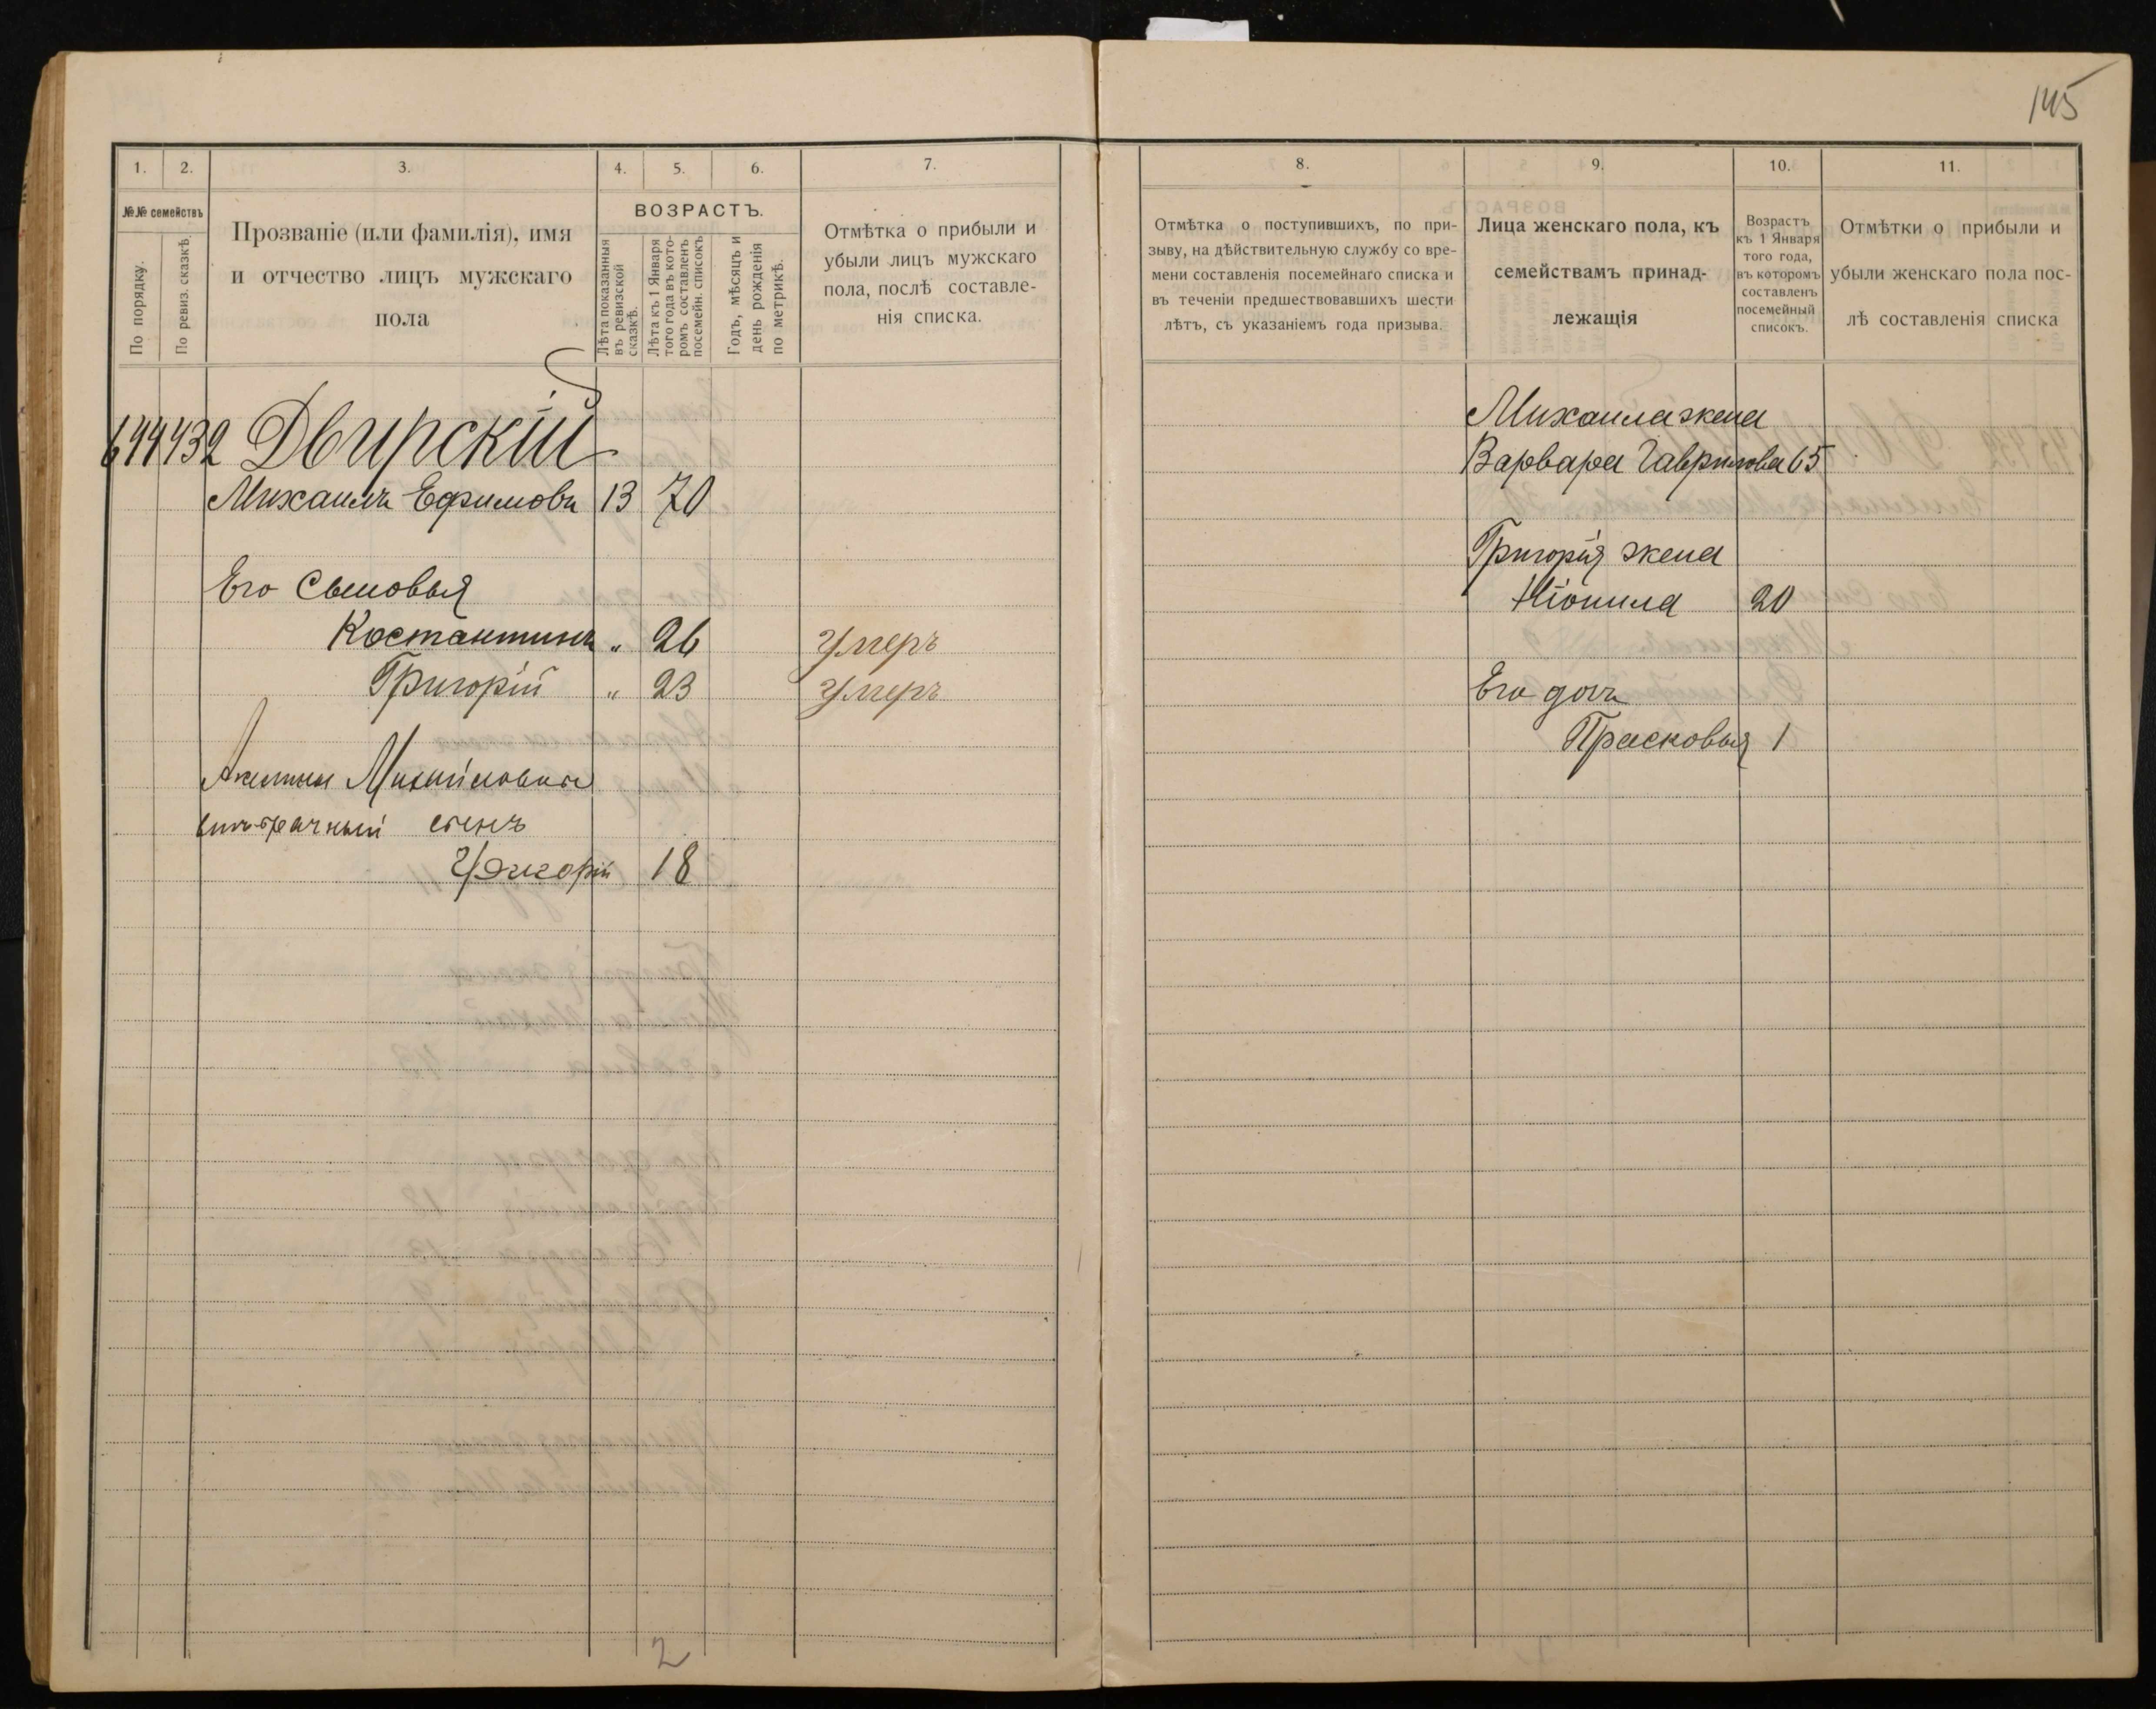 145
1. 2. 3. 4. 5. 6. 7.
№№ семействъ
По порядку.
По ревиз. сказкѣ.
Прозваніе (или фамилія), имя
и отчество лицъ мужскаго
пола
ВОЗРАСТЪ.
Лѣта показанныя
въ ревизской
сказкѣ.
Лѣта къ 1 Января
того года въ кото-
ромъ составленъ
посемейн. списокъ
Годъ, мѣсяцъ и
день рожденія
по метрикѣ.
Отмѣтка о прибыли и
убыли лицъ мужскаго
пола, послѣ составле-
нія списка.
644 432 Двирскій
Михаилъ Ефимовъ 13 70
Его Сыновья
Костантинъ „ 26 Умеръ
Григорій „ 23 Умеръ
внѣбрачный сынъ
18
2
8. 9. 10. 11.
Отмѣтка о поступившихъ, по при-
зыву, на дѣйствительную службу со вре-
мени составленія посемейнаго списка и
въ теченіи предшествовавшихъ шести
лѣтъ, съ указаніемъ года призыва.
Лица женскаго пола, къ
семействамъ принад-
лежащія
Возрастъ
къ 1 Января
того года,
въ которомъ
составленъ
посемейный
списокъ.
Отмѣтки о прибыли и
убыли женскаго пола пос-
лѣ составленія списка
Михаила жена
Варвара Гаврилова 65
Григорія жена
Неонила 20
Его дочь
Прасковья 1